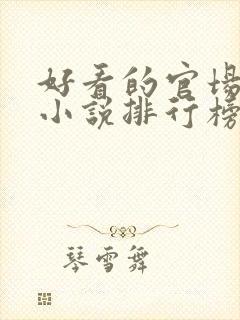 好看的官场
小说排行榜
琴雪舞